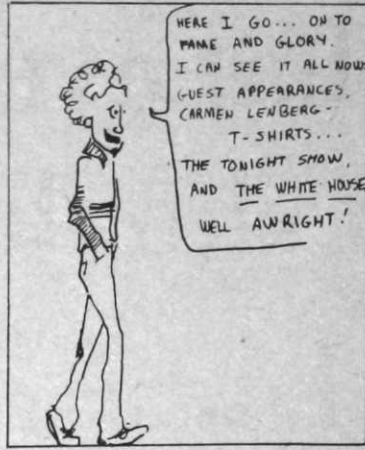 HERE I GO... ON TO
FAME AND GLORY.
I CAN SEE IT ALL NOW:
GUEST APPEARANCES,
CARMEN LENBERG-
T-SHIRTS...
THE TONIGHT SHOW,
AND THE WHITE HOUSE
WELL AWRIGHT!